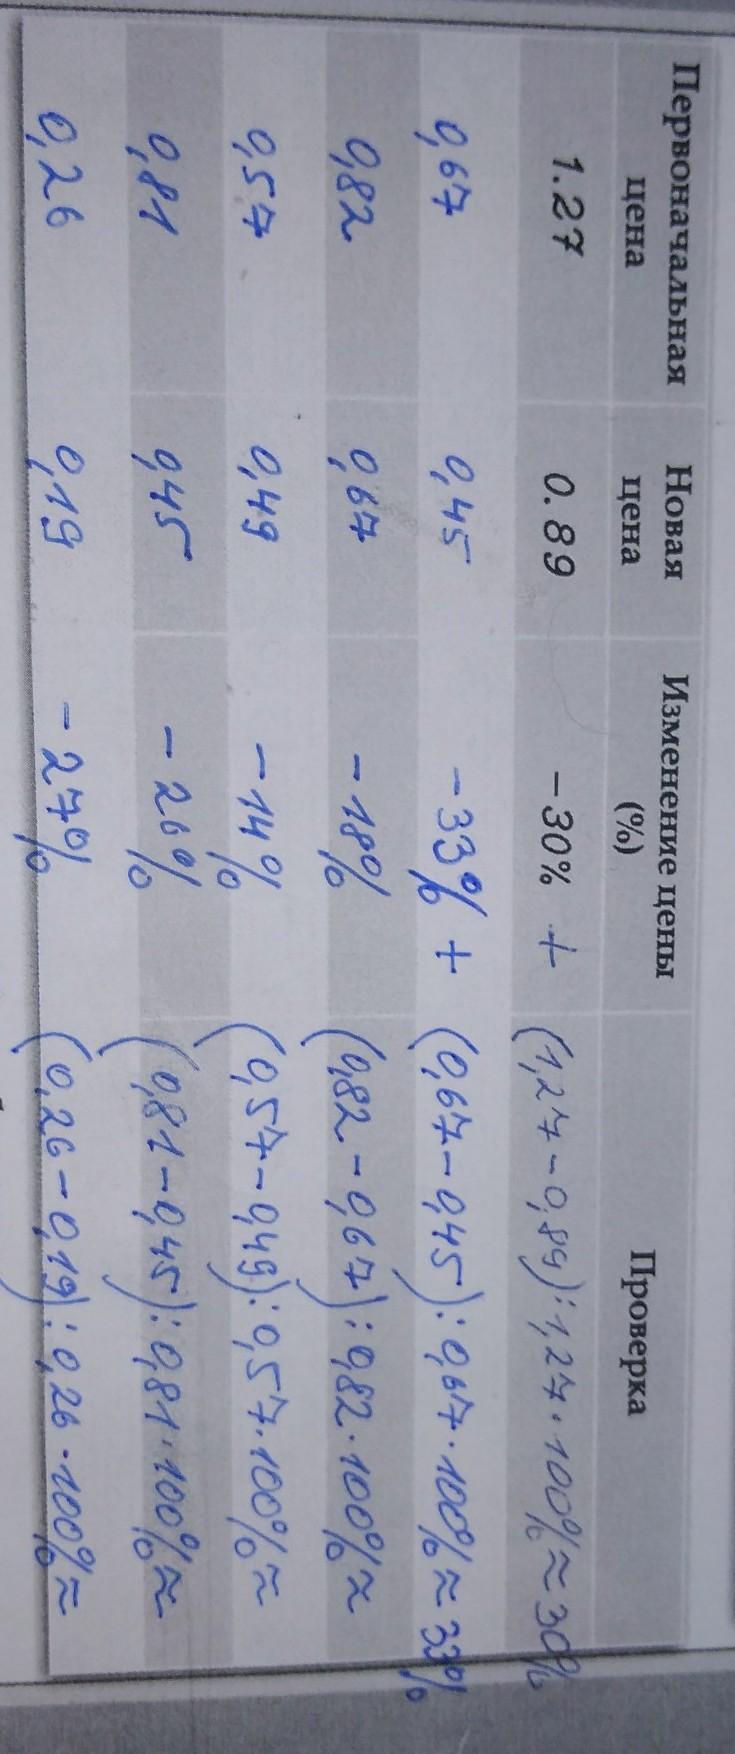 Первоначальная цена Новая цена Изменение цены (%) Проверка
1.27 0.89 -30% + (1,27-0,89):1,27·100%≈30%
0,67 0,45 -33% + (0,67-0,45):0,67·100%≈33%
0,82 0,67 -18% (0,82-0,67):0,82·100%≈
0,57 0,49 -14% (0,57-0,49):0,57·100%≈
0,81 0,45 -26% (0,81-0,45):0,81·100%≈
0,26 0,19 -27% (0,26-0,19):0,26·100%≈